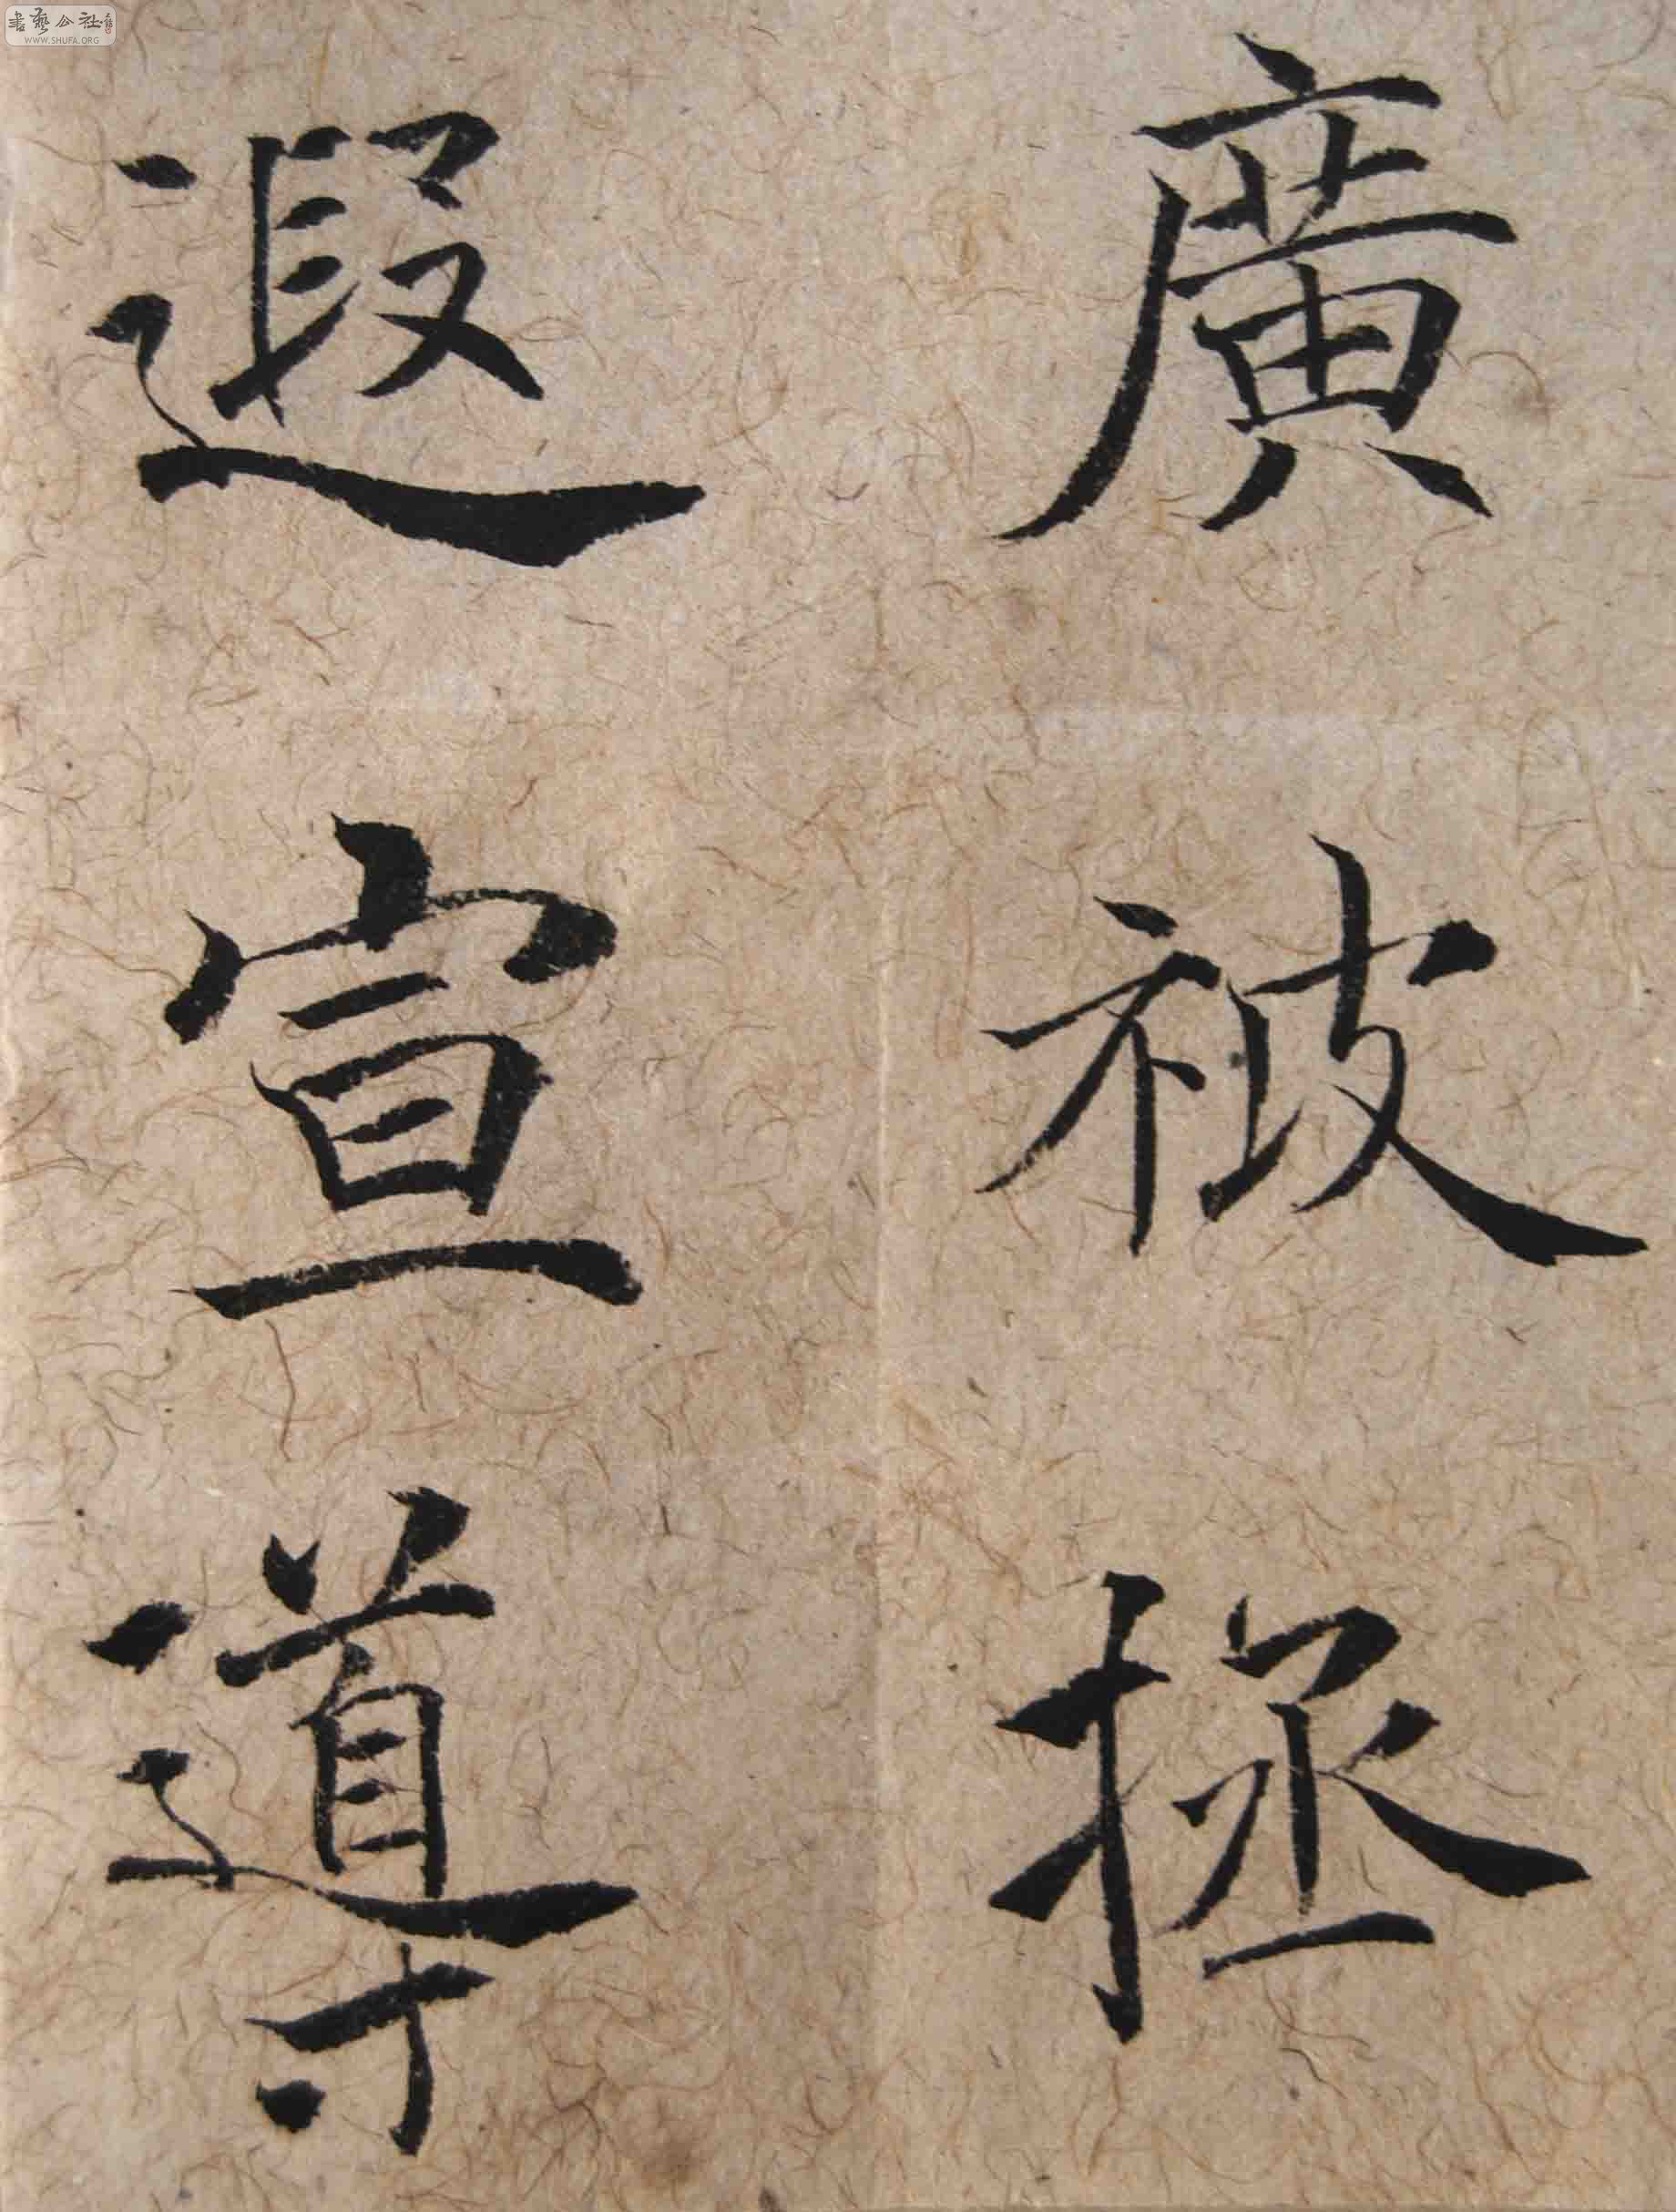 廣被拯
遐宣導
書藝公社
WWW.SHUFA.ORG